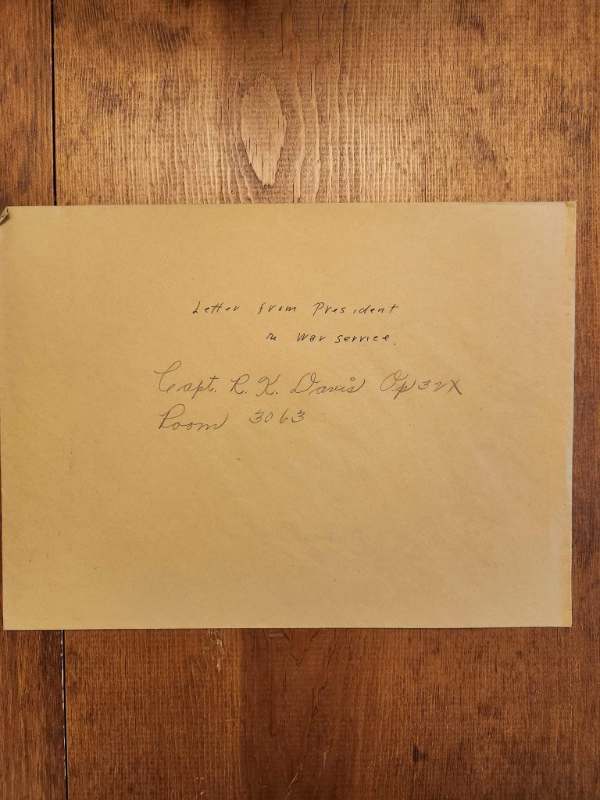 Letter from President
re War service.
Capt. R. K. Davis Op32X
Room 3063